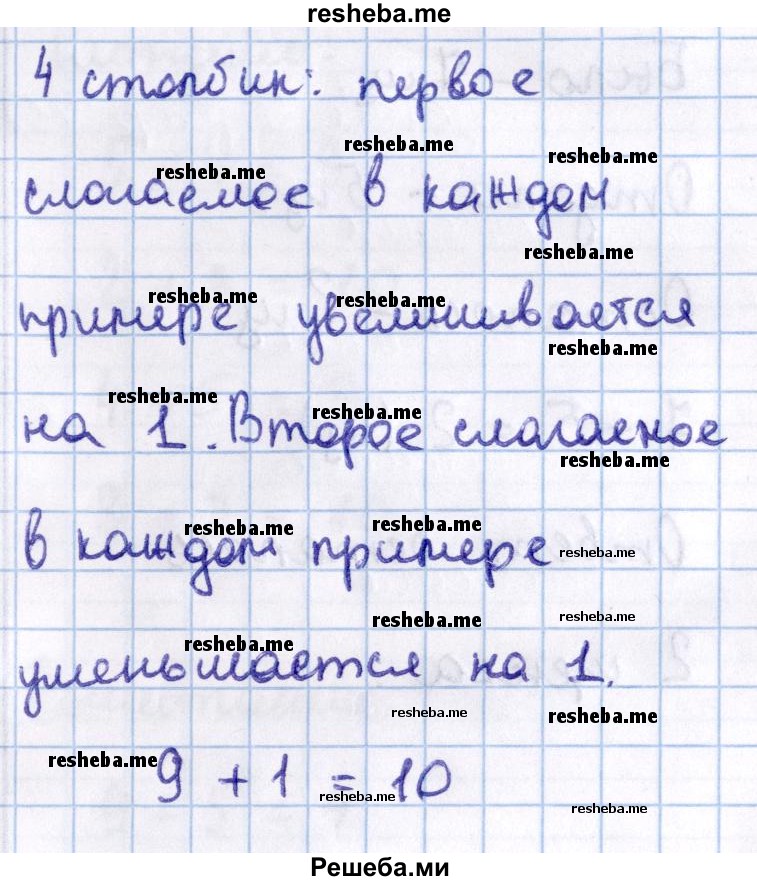 resheba.me
4 столбик: первое
resheba.me
resheba.me
resheba.me
слагаемое в каждом
resheba.me
resheba.me
resheba.me
примере увеличивается
resheba.me
resheba.me
resheba.me
на 1. Второе слагаемое
resheba.me
resheba.me
resheba.me
resheba.me
в каждом примере
resheba.me
resheba.me
resheba.me
уменьшается на 1.
resheba.me
resheba.me
resheba.me
9 + 1 = 10
resheba.me
resheba.me
Решеба.ми